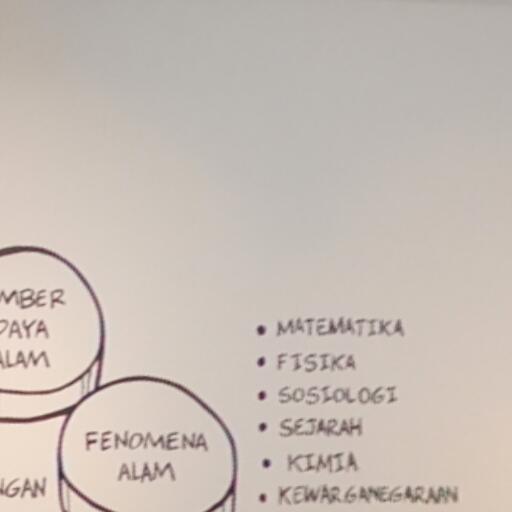 MBER
DAYA
ALAM
FENOMENA
ALAM
NGAN
• MATEMATIKA
• FISIKA
• SOSIOLOGI
• SEJARAH
• KIMIA
• KEWARGANEGARAAN